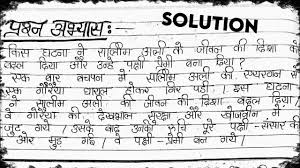 प्रश्न अभ्यास:-
SOLUTION
किस घटना ने सालिम अली के जीवन की दिशा को
बदल दिया और उन्हें पक्षी प्रेमी बना दिया?
एक बार बचपन में सालिम अली की एयरगन से
एक गौरैया घायल होकर गिर पड़ी। इस घटना
ने सालिम अली के जीवन की दिशा बदल दिया।
वे गौरैया की देखभाल सुरक्षा और खोजबीन में
जुट गए। उसके बाद उनकी रुचि पूरे पक्षी-संसार की
ओर मुड़ गई। वे पक्षी-प्रेमी बन गए।